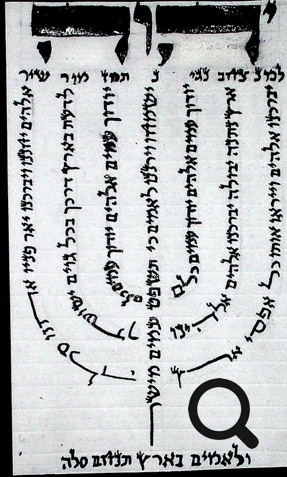 שיר
אלהים יחננו ויברכנו יאר פניו אתנו סלה
לדעת בארץ דרכך בכל גוים ישועתך
יודוך עמים אלהים יודוך עמים כלם
ישמחו וירננו לאמים כי תשפט עמים מישר
יודוך עמים אלהים יודוך עמים כלם
ארץ נתנה יבולה יברכנו אלהים אלהינו
יברכנו אלהים וייראו אותו כל אפסי ארץ
ולאמים בארץ תנחם סלה